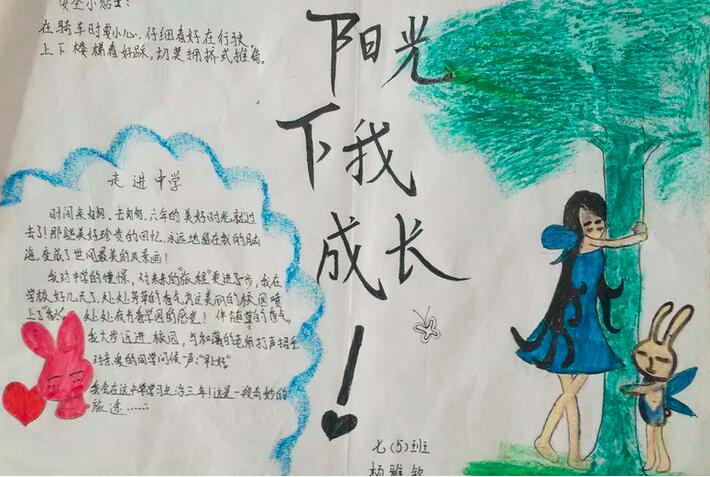 安全小贴士:
在骑车时要小心,仔细看好在行驶,
上下楼梯看好踩,切莫拥挤或推搡。
阳光
下我
成长
!
走进中学
时间来匆匆,去匆匆,六年的美好时光就过
去了!那些美好珍贵的回忆,永远地留在我的脑
海,变成了世间最美的风景画!
我对中学的憧憬,对未来的"旅程"更进了步,我在
学校好几天了,处处芳草的香气为这美丽的校园喷
上了
处处
书香学园的感觉!伴随
的香气
我大步迈进校园,与和蔼的老师打声招呼
对亲爱的同学问候一声:"早上好"
我会在这中学学习生活三年!这是一段奇妙的
旅途……
七(5)班
杨雅